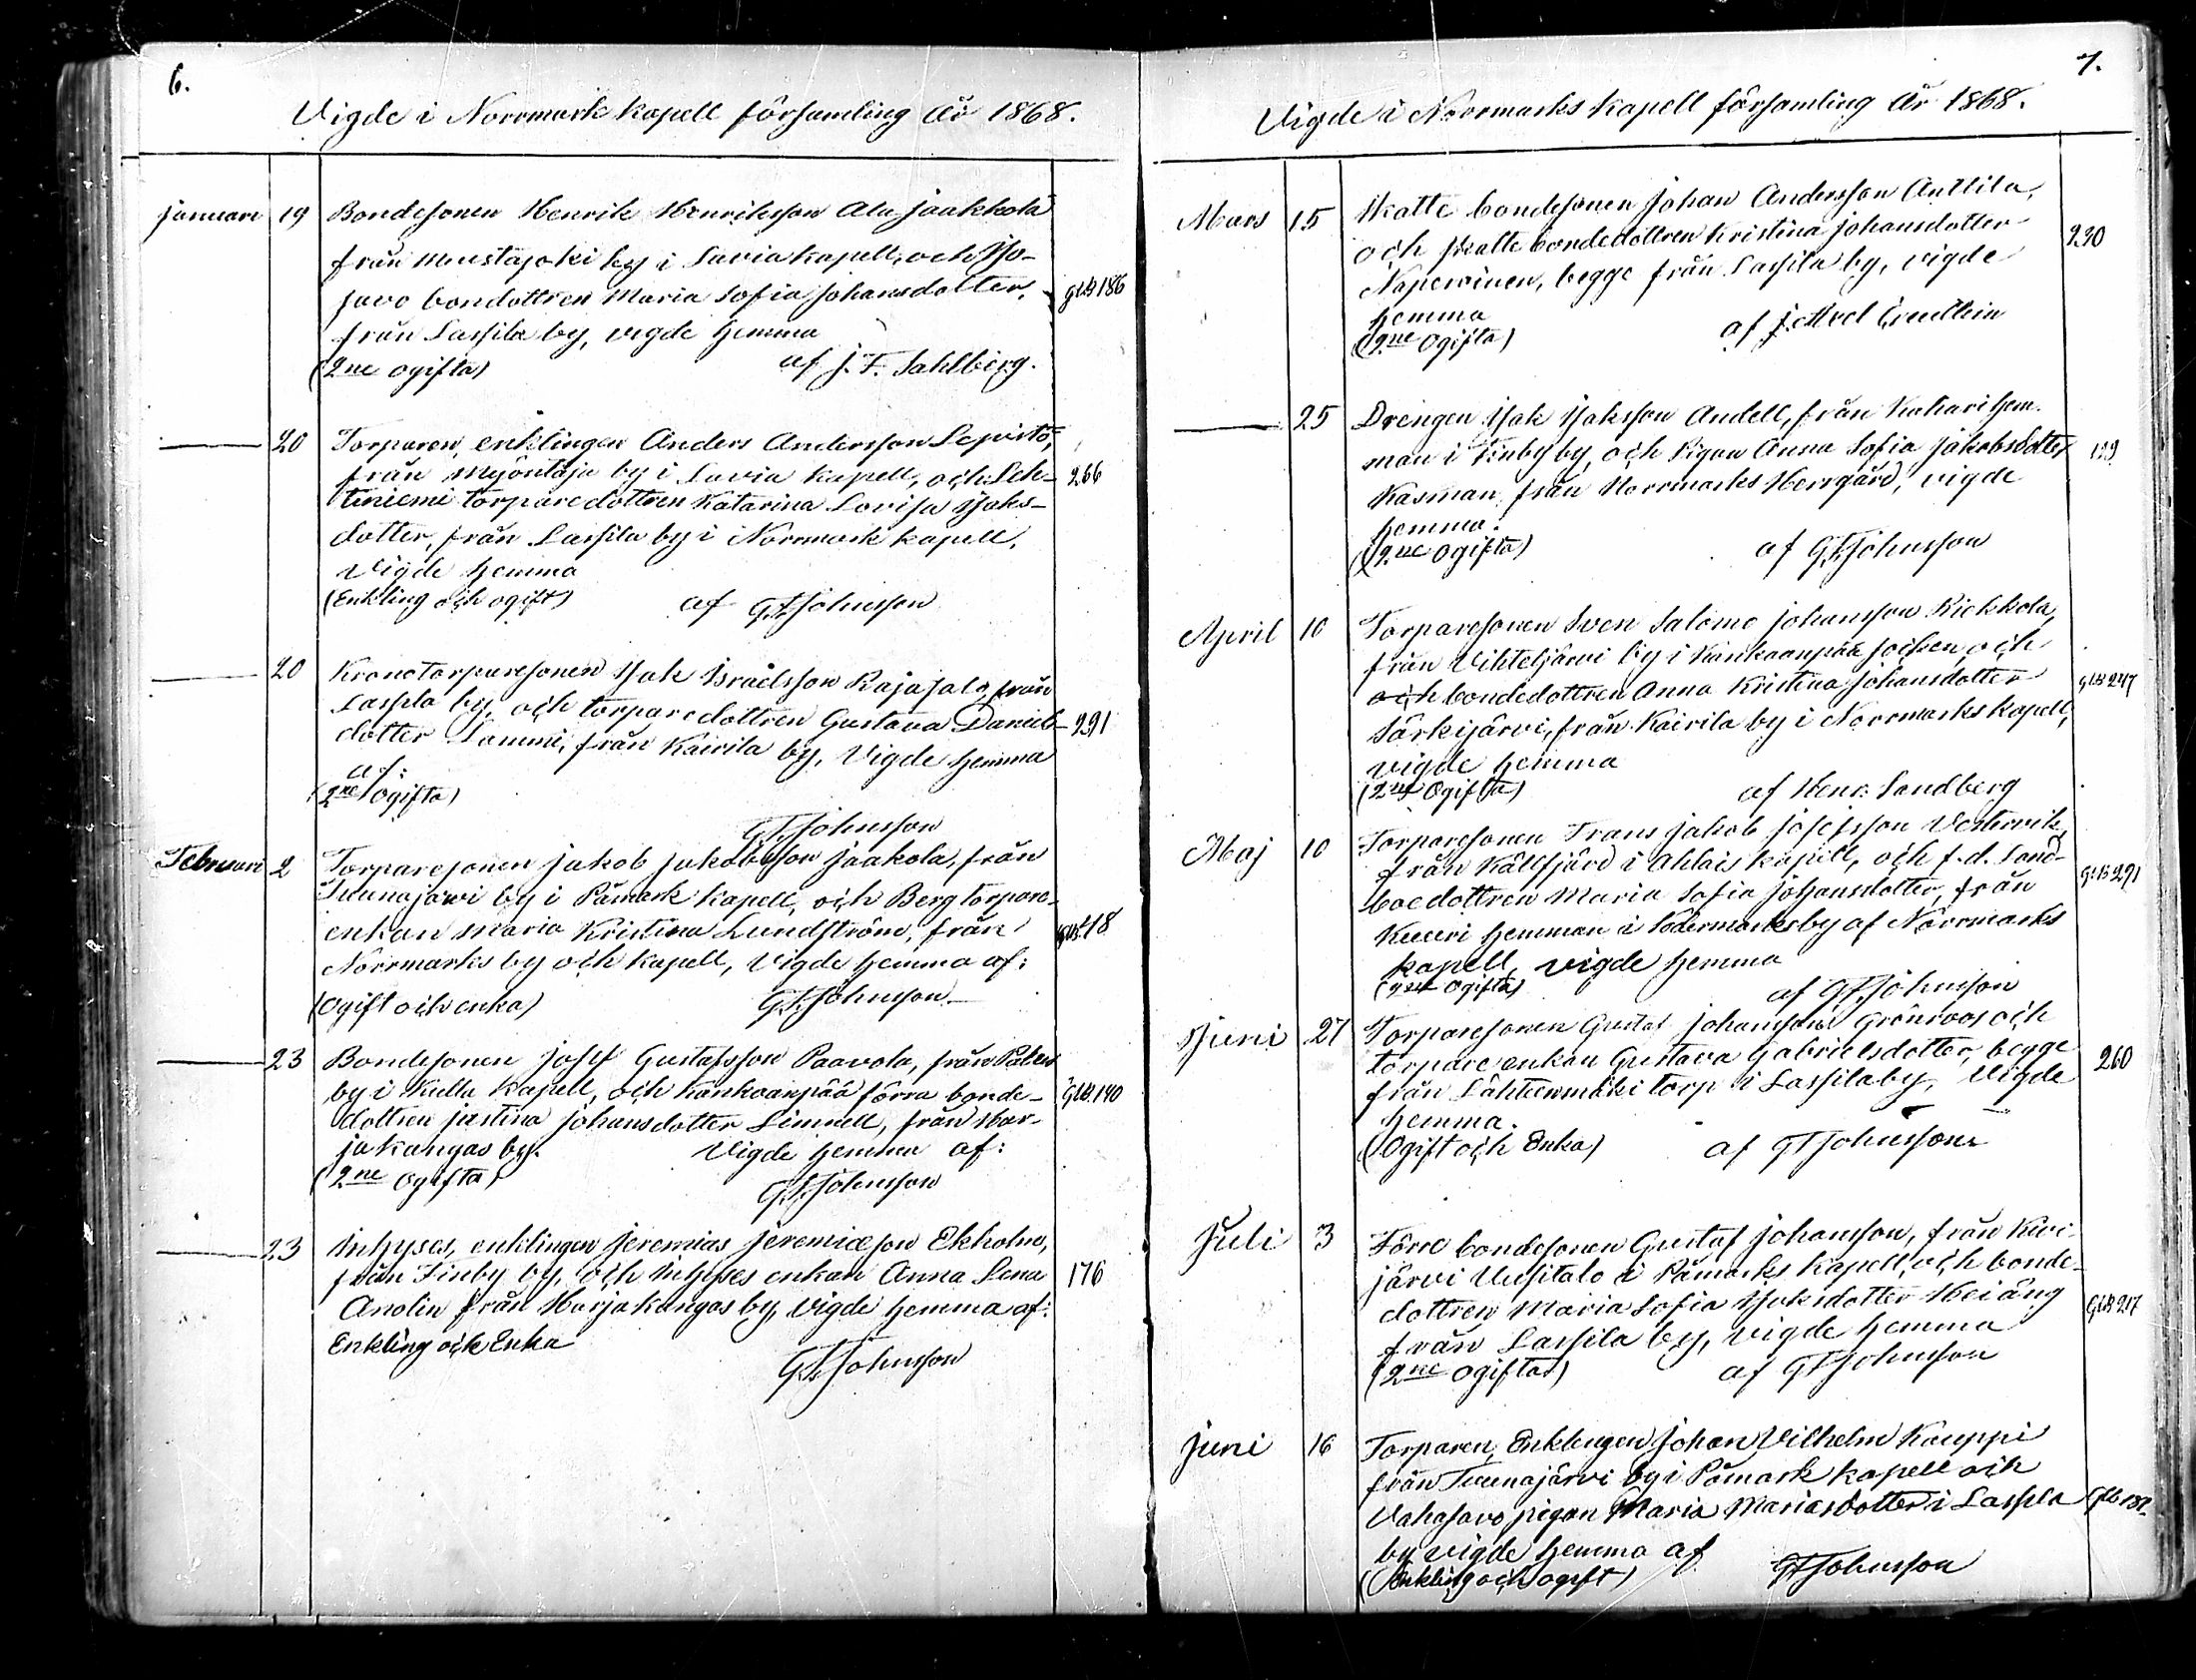 6.
Vigde i Norrmark kapell församling År 1868.
Januari 19 Bondesonen Henrik Henriksson Ala-Jaakkola
från Mustajoki by i Lavia kapell, och Iso-
javo bondottren Maria Sofia Johansdotter,
GLB 186
från Lassila by, vigde hemma
(2ne ogifta) af J. F. Sahlberg.
20 Torparen, enklingen Anders Andersson Lepistö,
från Myöntäjä by i Lavia kapell, och Leh-
266
tiniemi torparedottren Katarina Lovisa Isaks-
dotter, från Lassila by i Norrmark kapell,
Vigde hemma
(Enkling och ogift) af G.F.Johnsson
20 Kronotorparesonen Isak Israelsson Rajasalo, från
Lassila by, och torparedottren Gustava Daniels-
291
dotter Lammi, från Kairila by, Vigde hemma
af:
(2ne Ogifta)
G.F.Johnsson
Februari 2 Torparesonen Jakob Jakobsson Jaakola, från
Tuunajärvi by i Påmark kapell, och Bergtorpare-
enkan Maria Kristina Lundström, från
GLB 18
Norrmarks by och kapell, Vigde hemma af:
(Ogift och enka) G.F.Johnsson
23 Bondesonen Josef Gustafsson Paavola, från Palus
by i Kulla kapell, och Kankaanpää förra bonde-
GLB. 140
dottren Justina Johansdotter Limnell, från Har-
jakangas by. Vigde hemma af:
(2ne Ogifta)
G.F.Johnsson
23 Inhyses, enklingen Jeremias Jeremiæson Ekholm,
från Finby by, och Inhyses enkan Anna Lena
176
Anolin från Harjakangas by, Vigde hemma af:
Enkling och Enka
G.F.Johnsson
7.
Vigde i Norrmarks Kapell församling År 1868.
Mars 15 Skatte bondesonen Johan Andersson Anttila,
och skatte bondedottren Kristina Johansdotter
230
Naperoinen, begge från Lassila by, vigde
hemma
(2ne Ogifta) af J. Axel
25 Drengen Isak Isaksson Andell, från Katari hem-
man i Finby by, och Pigan Anna Sofia Jakobsdotter
Kasman från Norrmarks Herrgård, vigde
hemma.
(2ne Ogifta) af G.F.Johnsson
April 10 Torparesonen Sven Salomo Johansson Riekkola,
från Vihteljärvi by i Kankaanpää socken, och
och bondedottren Anna Kristina Johansdotter
GLB 247
Särkijärvi, från Kairila by i Norrmarks kapell,
vigde hemma
(2ne Ogifta) af Henr. Sandberg
Maj 10 Torparesonen Frans Jakob Josefsson Vestervik,
från Källfjärd i Ahlais kapell, och f.d. Land-
GLB 291
boedottren Maria Sofia Johansdotter, från
Kuuri hemman i Södermarks by af Norrmarks
kapell, vigde hemma
(2ne Ogifta) af G.F.Johnsson
Juni 27 Torparesonen Gustaf Johansson Grönroos och
torpare enkan Gustava Gabrielsdotter, begge
260
från Lähteenmäki torp i Lassila by, Vigde
hemma.
(Ogift och Enka) af GFJohnsson
Juli 3 Förre bondesonen Gustaf Johansson, från Kivi-
järvi Uusitalo i Påmarks kapell, och bonde-
dottren Maria Sofia Isaksdotter Heiäng
GLB 217
från Lassila by, vigde hemma
(2ne ogifta) af GFJohnsson
Juni 16 Torparen, Enklingen Johan Vilhelm Kauppi
från Tuunajärvi by i Påmark kapell och
Vahasavo pigan Maria Mariasdotter i Lassila
by vigde hemma af
(Enkling och ogift) GFJohnsson